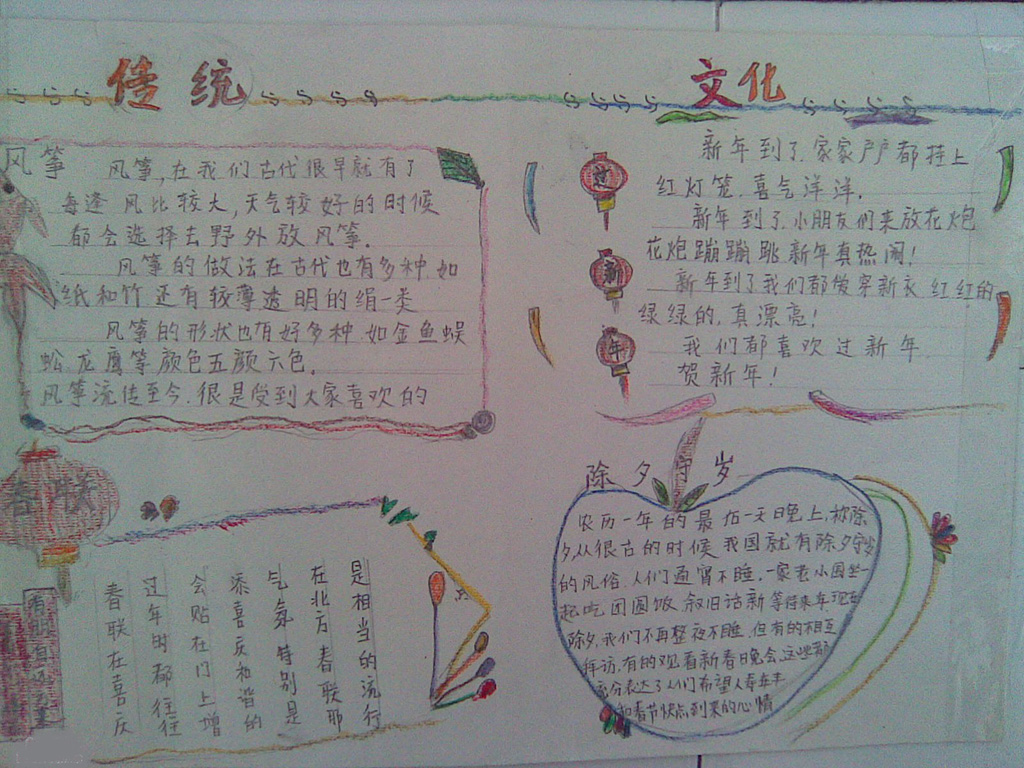 传统
文化
风筝
风筝,在我们古代很早就有了
每逢风比较大,天气较好的时候
都会选择去野外放风筝.
风筝的做法在古代也有多种.如
纸和竹还有较薄透明的绢一类
风筝的形状也有好多种 如金鱼蜈
蚣龙鹰等颜色五颜六色.
风筝流传至今.很是受到大家喜欢的
过
新
年
新年到了.家家户户都挂上
红灯笼.喜气洋洋.
新年到了.小朋友们来放花炮
花炮蹦蹦跳.新年真热闹!
新年到了我们都爱穿新衣.红红的
绿绿的.真漂亮!
我们都喜欢过新年.
贺新年!
春联
春联在喜庆
过年时都往往
会贴在门上增
添喜庆和谐的
气氛 特别是
在北方春联那
是相当的流行
点
除夕守岁
农历一年的最后一天晚上,被除
夕,从很古的时候 我国就有除夕守岁
的风俗.人们通宵不睡.一家老小围坐一
起吃团圆饭 叙旧话新 等待来年现在
除夕,我们不再整夜不睡.但有的相互
拜访.有的观看新春晚会.这些都
充分表达了人们希望人寿年丰
和春节快点到来的心情